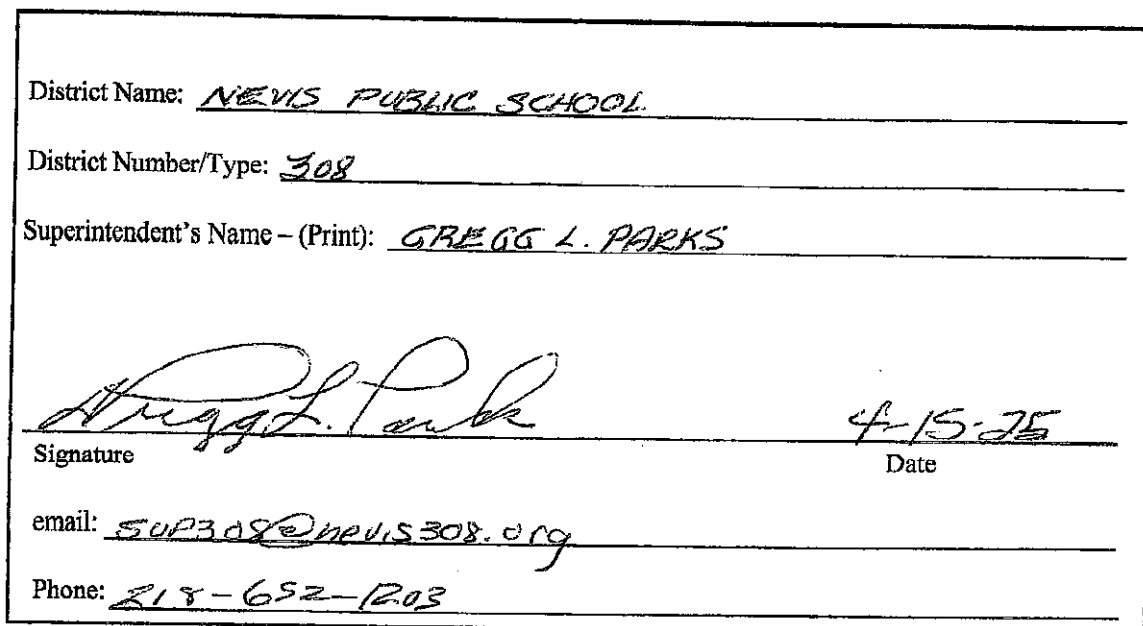 District Name: NEVIS PUBLIC SCHOOL
District Number/Type: 308
Superintendent's Name – (Print): GREGG L. PARKS
Gregg L. Parks
4-15-25
Signature
Date
email: SUP308@nevis308.org
Phone: 218-652-1203